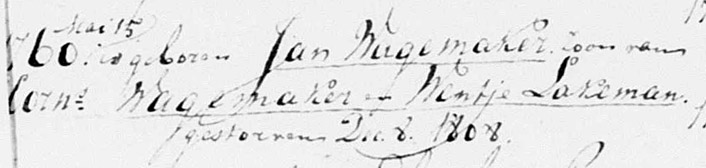 Mai 15
760 is geboren Jan Wagemaker. Zoon van
Corns Wagemaker en Wentje Lakeman.
gestorven Dec 8. 1808.